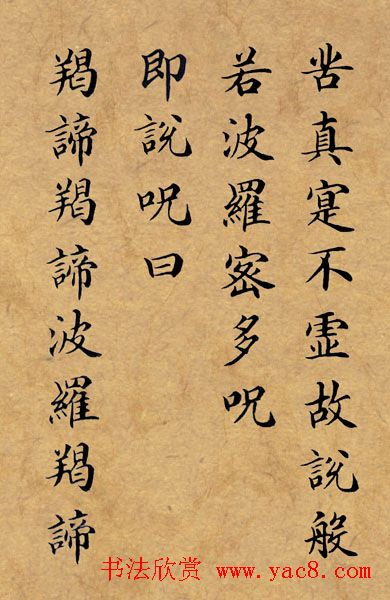 苦真寔不虛故說般
若波羅密多呪
即說呪曰
羯諦羯諦波羅羯諦
书法欣赏 www.yac8.com